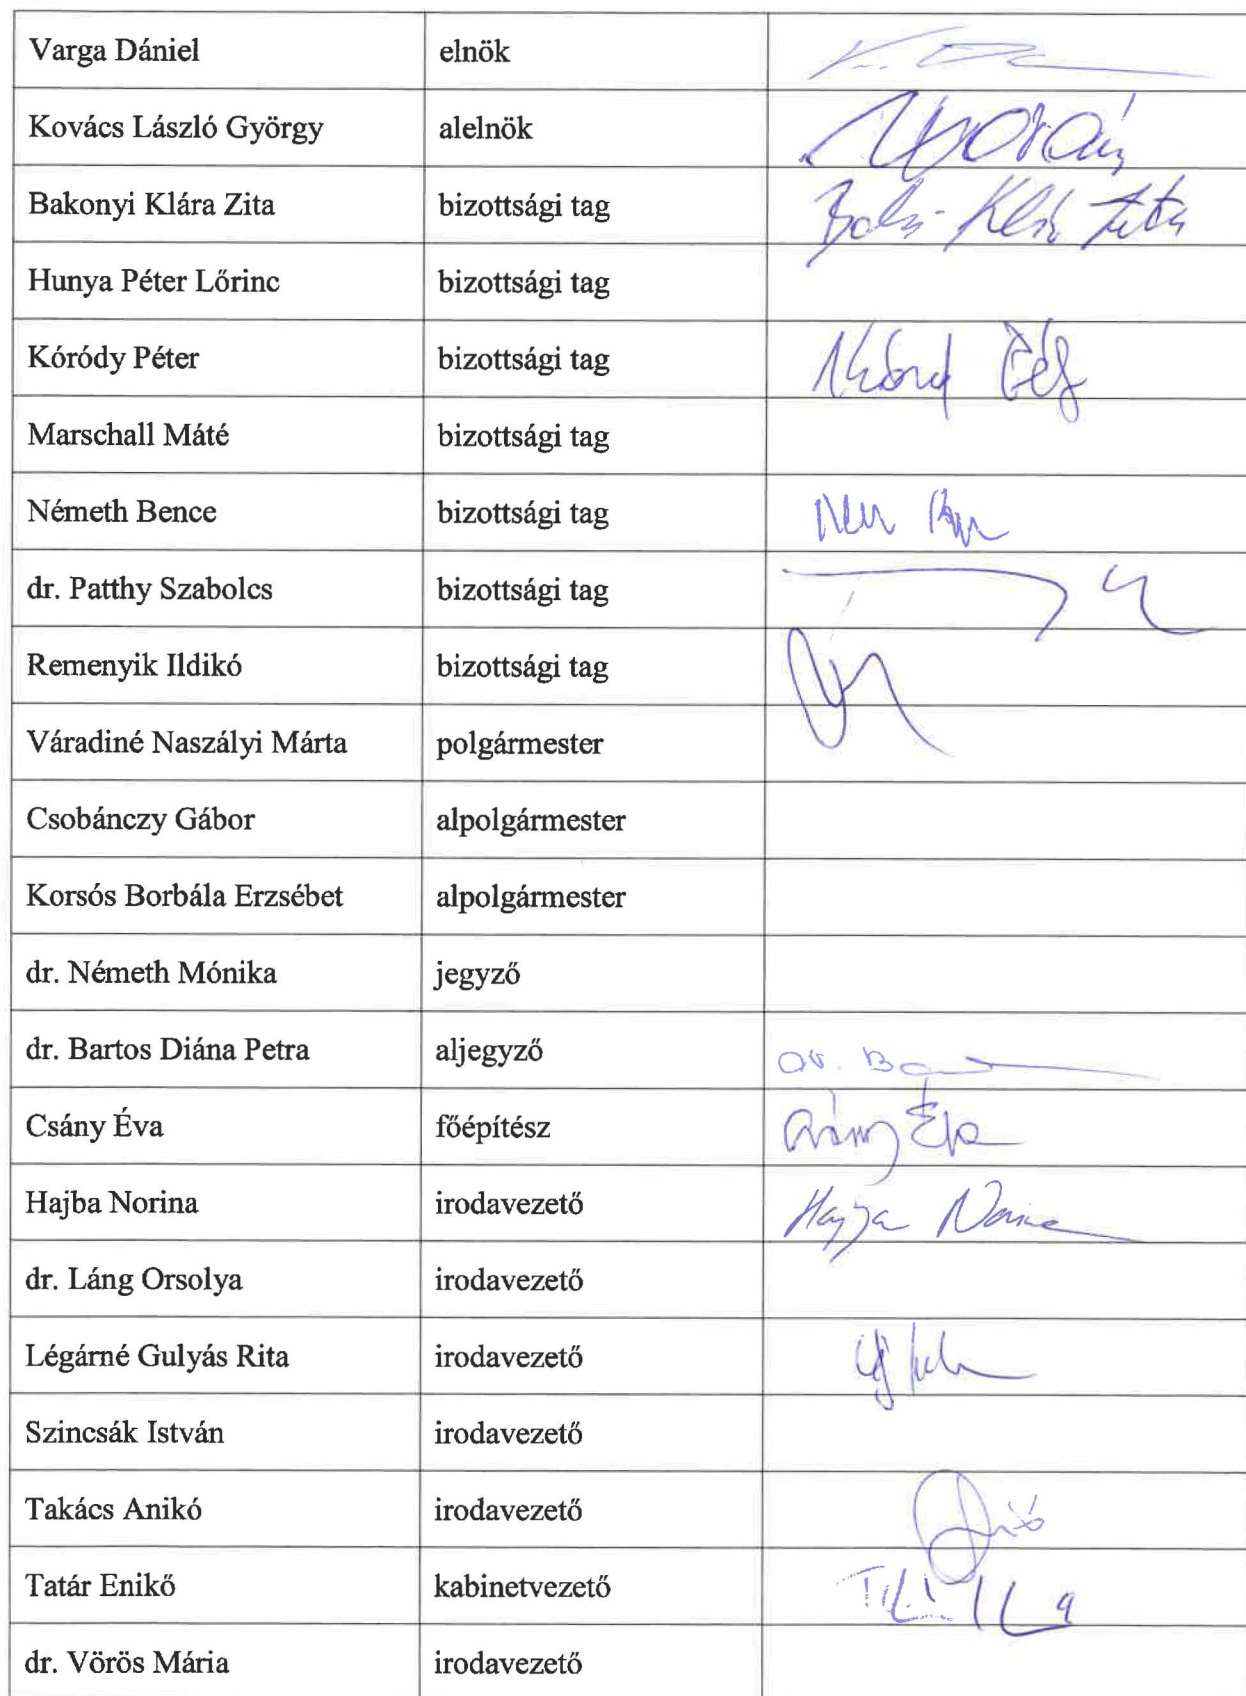 Varga Dániel elnök
Kovács László György alelnök
Bakonyi Klára Zita bizottsági tag
Hunya Péter Lőrinc bizottsági tag
Kóródy Péter bizottsági tag
Marschall Máté bizottsági tag
Németh Bence bizottsági tag
dr. Patthy Szabolcs bizottsági tag
Remenyik Ildikó bizottsági tag
Váradiné Naszályi Márta polgármester
Csobánczy Gábor alpolgármester
Korsós Borbála Erzsébet alpolgármester
dr. Németh Mónika jegyző
dr. Bartos Diána Petra aljegyző
Csány Éva főépítész
Hajba Norina irodavezető
dr. Láng Orsolya irodavezető
Légárné Gulyás Rita irodavezető
Szincsák István irodavezető
Takács Anikó irodavezető
Tatár Enikő kabinetvezető
dr. Vörös Mária irodavezető